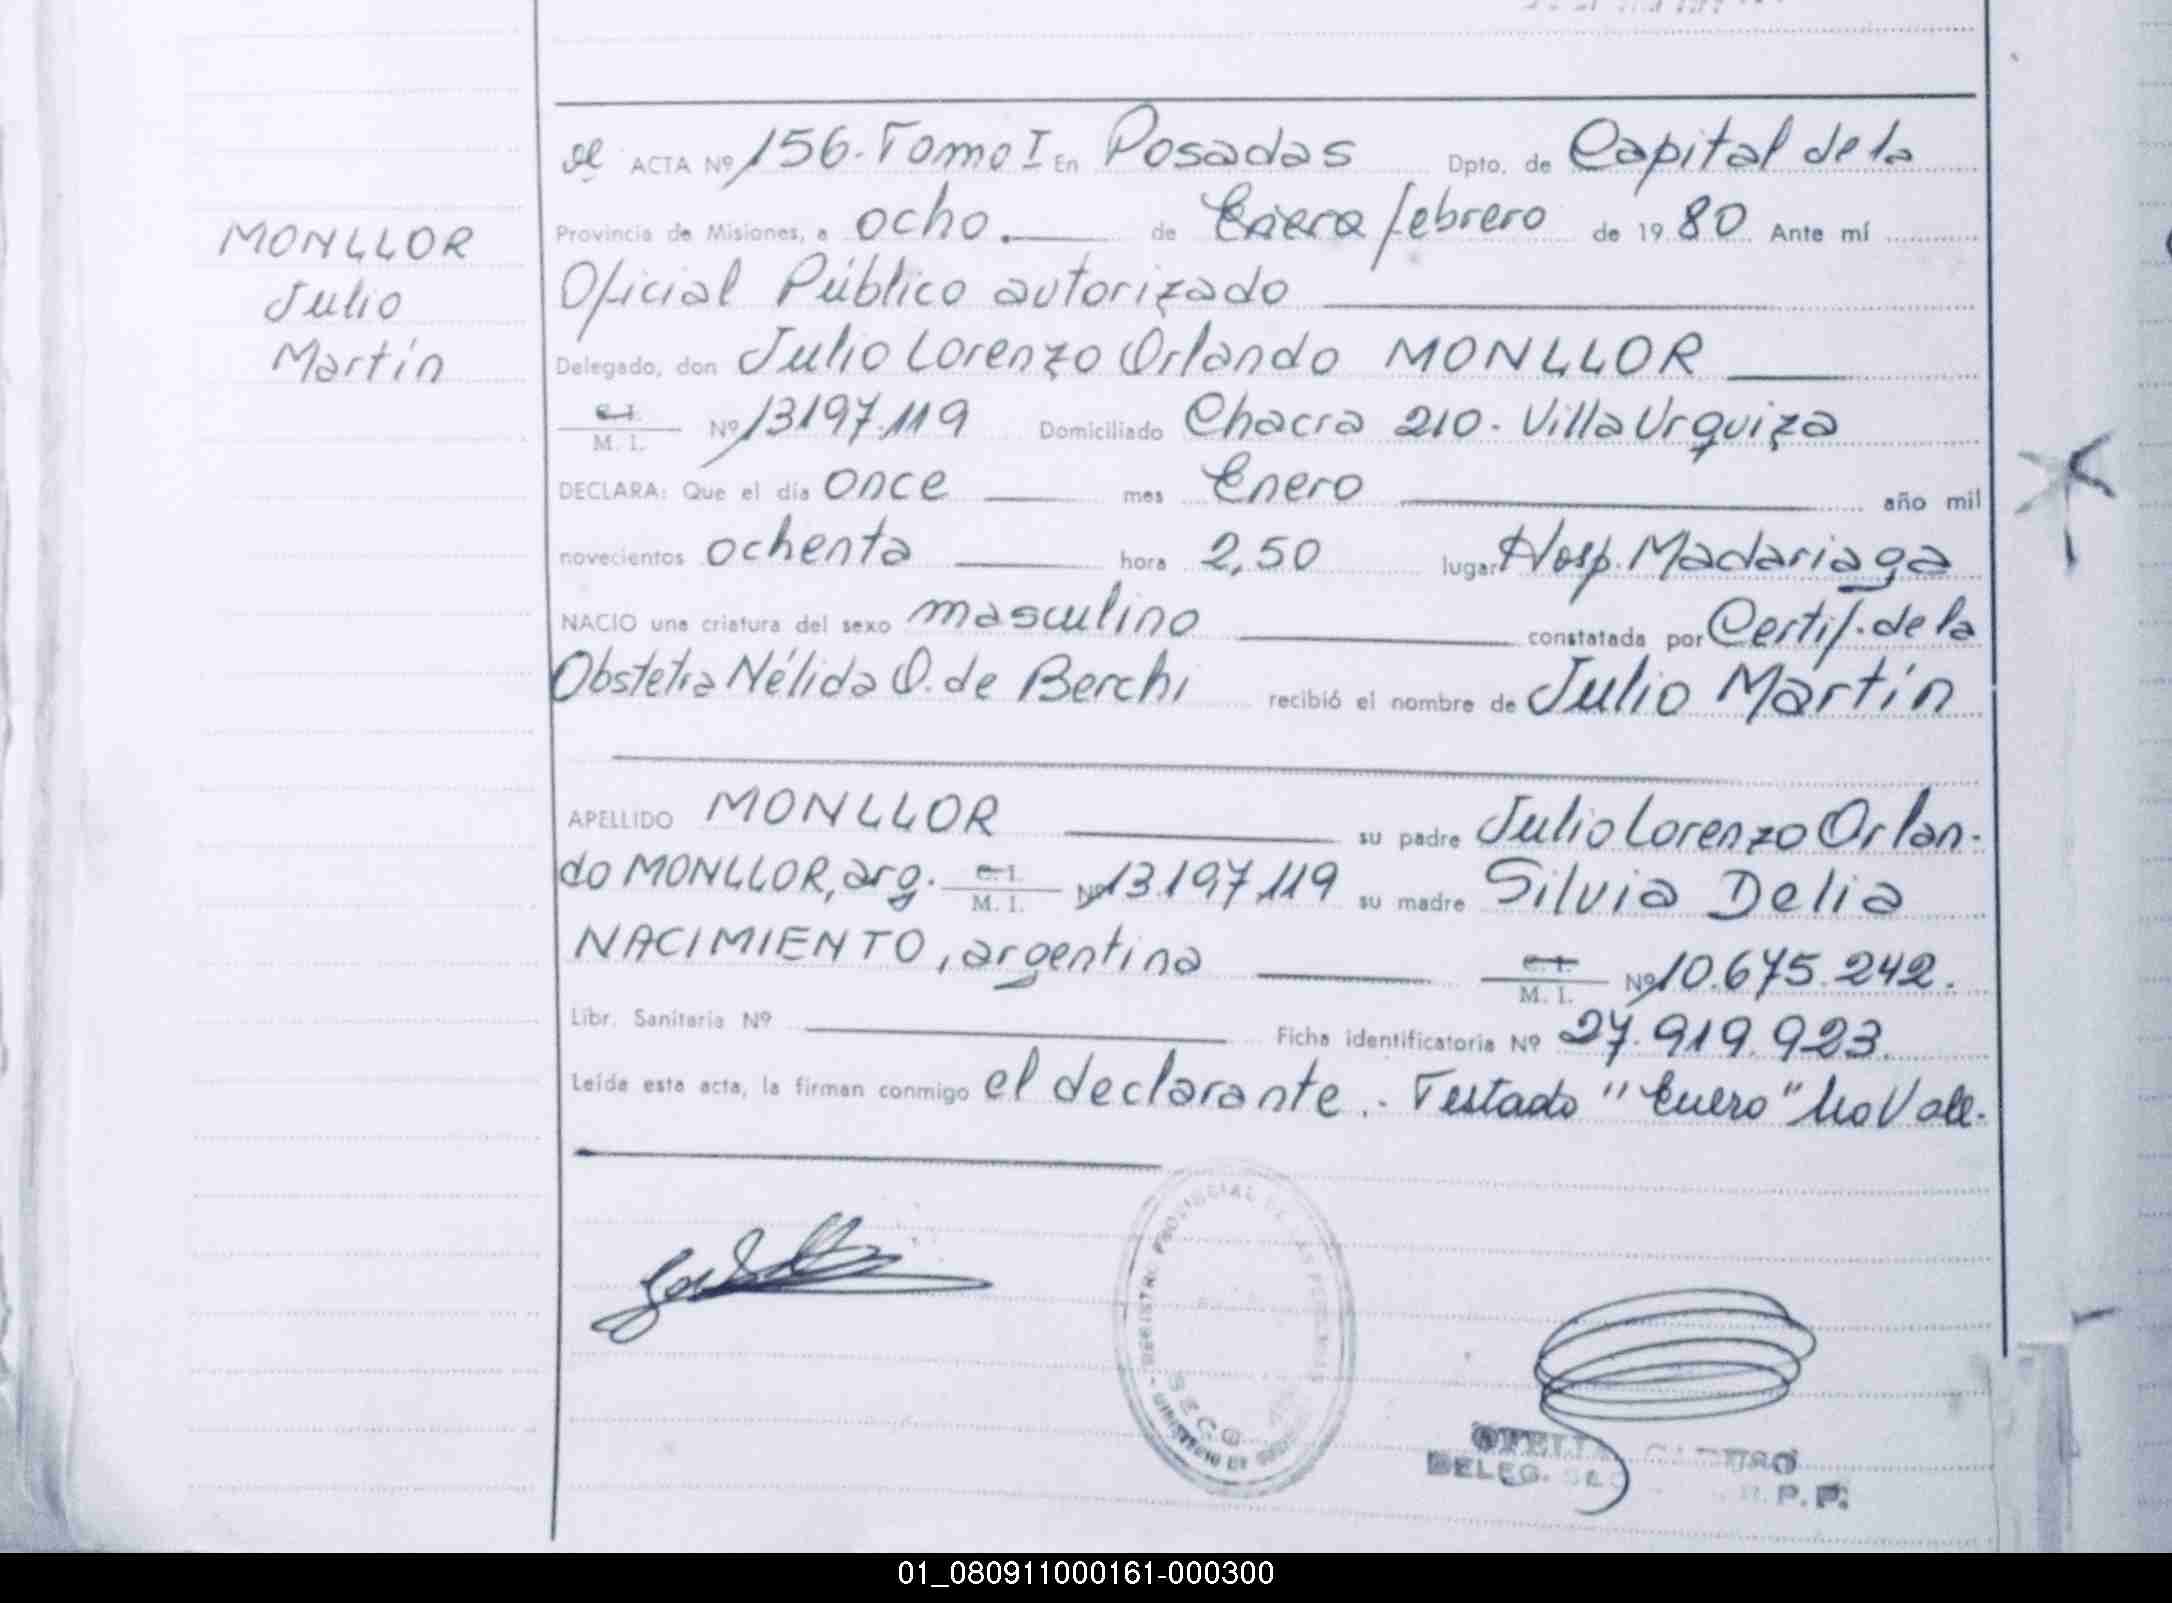 MONLLOR
Julio
Martín
ACTA Nº 156. Tomo I En Posadas Dpto. de Capital de la
Provincia de Misiones, a ocho. de Enero febrero de 1980 Ante mí
Oficial Público autorizado
Delegado, don Julio Lorenzo Orlando MONLLOR
C.I.
M. I. Nº 13197.119 Domiciliado Chacra 210. Villa Urquiza
DECLARA: Que el día once mes Enero año mil
novecientos ochenta hora 2,50 lugar Hosp. Madariaga
NACIO una criatura del sexo masculino constatada por Certif. de la
Obstetra Nélida O. de Berchi recibió el nombre de Julio Martín
APELLIDO MONLLOR su padre Julio Lorenzo Orlan-
do MONLLOR, arg. C.I. M. I. Nº 13.197.119 su madre Silvia Delia
NACIMIENTO, argentina C.I. M. I. Nº 10.675.242.
Libr. Sanitaria Nº Ficha identificatoria Nº 27.919.923.
Leída esta acta, la firman conmigo el declarante.- Testado "Enero" No Vale.
REGISTRO PROVINCIAL DE LAS PERSONAS
MINISTERIO DE
DELEG.
R.P.P.
01_080911000161-000300